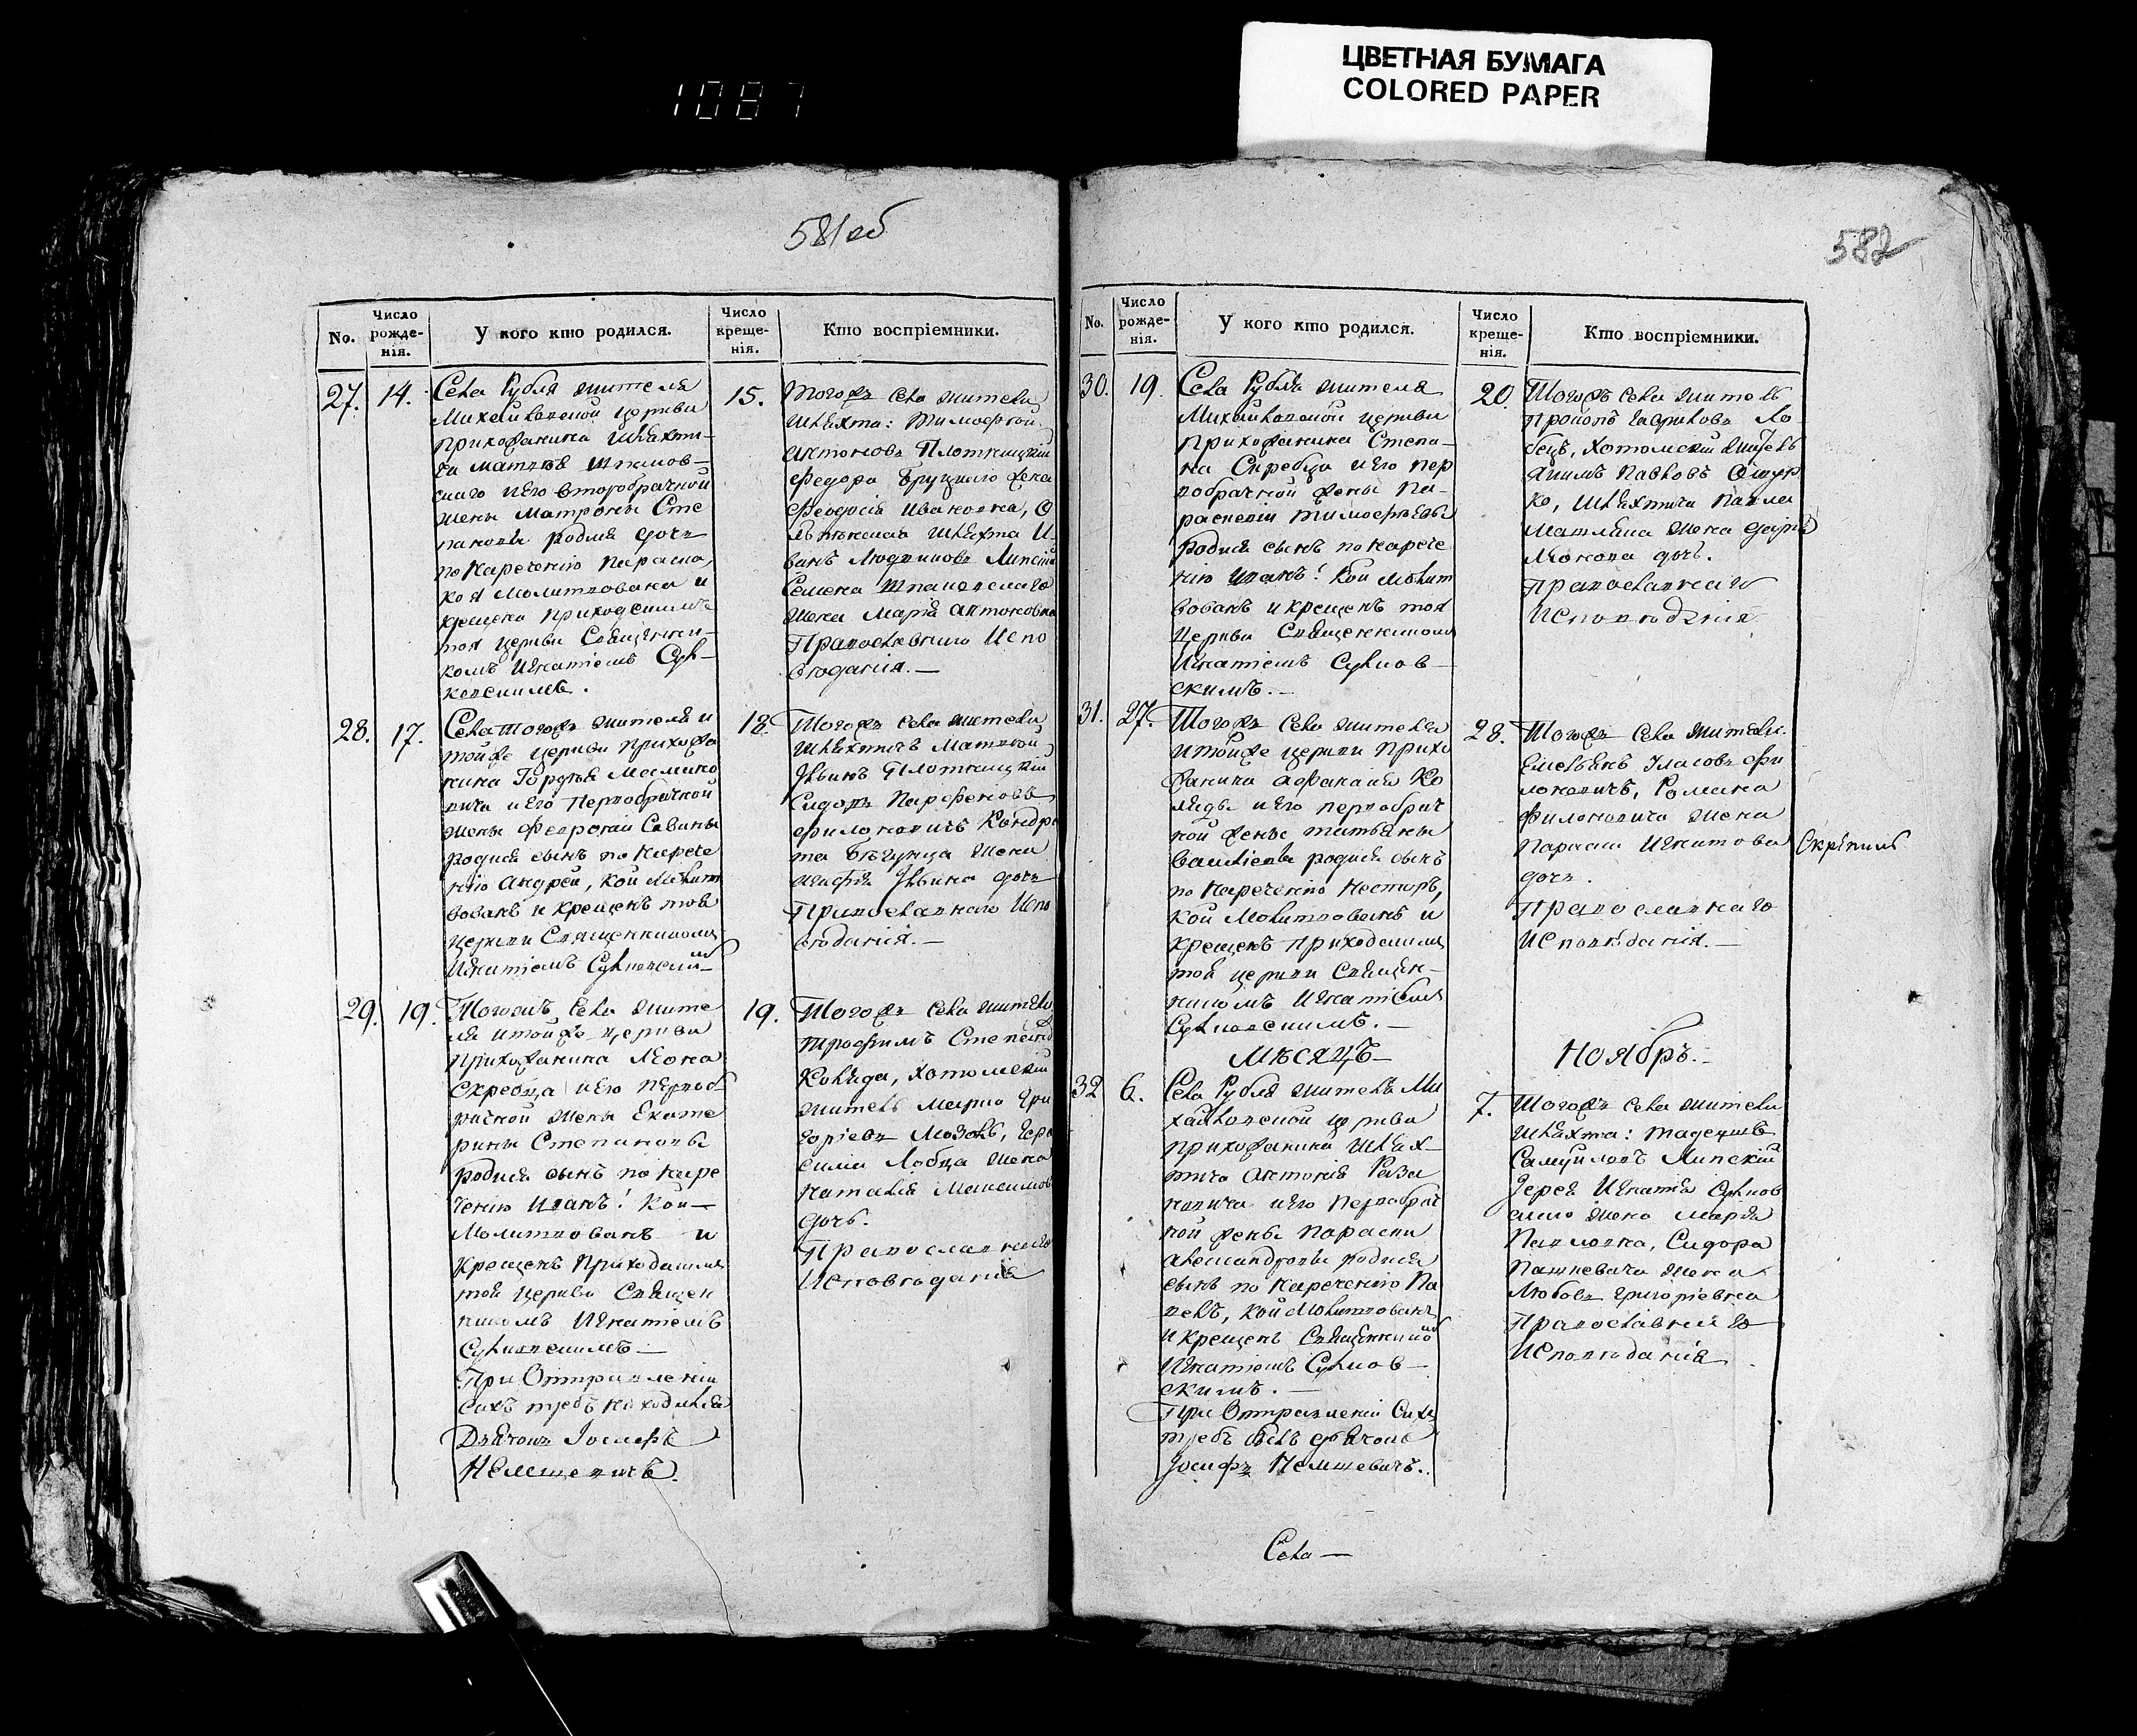 ЦВЕТНАЯ БУМАГА
COLORED PAPER
1087
581об
No.
Число рожде-нія.
У кого кто родился.
Число креще-нія.
Кто воспріемники.
27. 14.
Села Рубля жителя
Михайловской церкви
прихожанина шляхти-
ча
скаго и его второбрачной
жены Матроны Сте
пановы родися дочь
по нареченію Параска,
коя молитвована и
крещена приходскимъ
тоя церкви Священни-
комъ Игнатіемъ

15.
Тогожъ села жители
шляхта: Тимофей
Антоновъ Плотницкій
Федора жена
Феодосія Ивановна,
шляхта И-
ванъ Липскій
Семена
жена Марія Антоновна
Православнаго Испо
вѣданія.—
28. 17.
Села тогожъ жителя и
тойже церкви прихожа
нина
вича и его первобрачной
жены Савины
родися сынъ по нарече
нію Андрей, кой молит
вованъ и крещенъ тоя
церкви Священникомъ
Игнатіемъ
18.
Тогожъ села жители
шляхтичъ Матвей
Плотницкій
Сидоръ Парфеновъ
Филоновичъ Кондра
та жена
дочь
Православнаго Испо
вѣданія.—
29. 19.
Тогожъ села жите
ля и тойже церкви
прихожанина Леона
Скребца и его первоб
рачной жены Екате
рины Степановы
родися сынъ по наре
ченію Иванъ! Кой—
молитвованъ и
крещенъ приходскимъ
той церкви Священ
никомъ Игнатіемъ

При Отправленіи
сихъ требъ находился
Дьячокъ Іосифъ
Немшевичъ.
19.
Тогожъ села жители
Трофимъ
Коляда, Хотомскій
житель Марко Гри
горіевъ Мозоль, Гера
сима Лобца жена
Наталія Максимов
дочь.
Православнаго
Исповѣданія
582
No.
Число рожде-нія.
У кого кто родился.
Число креще-нія.
Кто воспріемники.
30. 19.
Села Рубля жителя
Михайловской церкви
прихожанина Степа-
на Скребца и его пер
вобрачной жены Па-
раскевіи Тимофѣевы
родися сынъ по нарече
нію Иванъ! Кой молит
вованъ и крещенъ тоя
церкви Священникомъ
Игнатіемъ
скимъ.—
20.
Тогожъ села житель
Прокопъ Гавриловъ Ло
бецъ, Хотомскій житель
Якимъ Павловъ
ко, шляхтича Павла
жена
дочь.
Православнаго
Исповѣданія
31. 27.
Тогожъ села жителя
и тойже церкви прихо
жанина Афанасія Ко
ляды и его первобрач
ной жены Татьяны
родися сынъ
по нареченію Несторъ,
кой молитвованъ и
крещенъ приходскимъ
той церкви Священ-
никомъ Игнатіемъ

28.
Тогожъ села жители.
Емельянъ Власовъ Фи
лоновичъ, Романа
Филоновича жена
Параска Игнатова
дочь.
Православнаго
Исповѣданія.—
Скрѣпилъ
Мѣсяцъ— Ноябрь.—
32 6.
Села Рубля житель Ми
хайловской церкви
прихожанина шлях-
тича Антонія
и его первобрач
ной жены Параски
Александровы родися
сынъ по нареченію Па
велъ, кой молитвованъ
и крещенъ Священникомъ
Игнатіемъ
скимъ.—
При Отправленіи Сихъ
требъ былъ дьячокъ
Іосифъ Немшевичъ.
7.
Тогожъ села жители
шляхта: Тадеушъ
Самуиловъ Липскій
Іерея Игнатія
жена Марія
Павловна, Сидора
Пашкевича жена
Любовь Григоріевна
Православнаго
Исповѣданія.
Села—